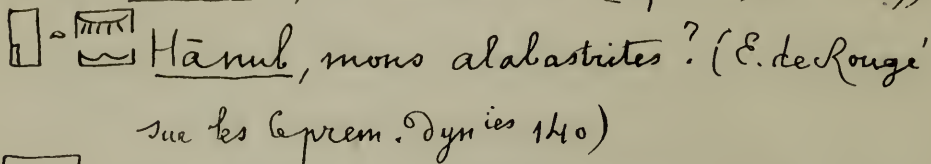 Hānub, mons alabastrites ? (E. de Rougé
sur les 6 prem. Dynies 140)